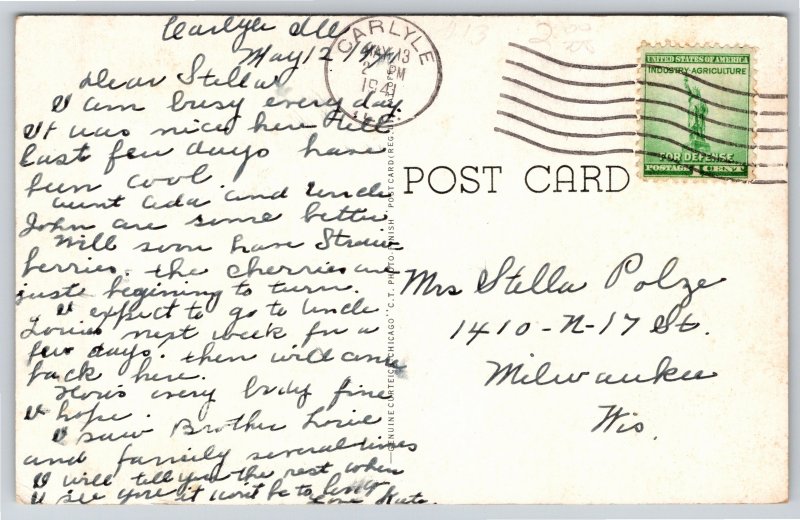 Carlyle Ill
May 12 1941
Dear Stella
I am busy every day.
It was nice here till
last few days have
bin cool
aunt Ada and Uncle
John are some better
Will soon have Straw-
berries. the cherries are
juste begining to turn.
I expect to go to Uncle
Louies next week for a
few days. then will come
back here.
Hows every body fine
I hope.
I saw Brother Louie
and family several times
I will tell you the rest when
I see you it wont be to long
Love Kate.
CARLYLE
MAY 13
2 PM
1941
UNITED STATES OF AMERICA
INDUSTRY·AGRICULTURE
FOR DEFENSE
POSTAGE 1 CENT
POST CARD
GENUINE CURTEICH-CHICAGO "C.T. PHOTO-FINISH" POST CARD (REG.
Mrs Stella Polze
1410-N-17 St.
Milwaukee
Wis.